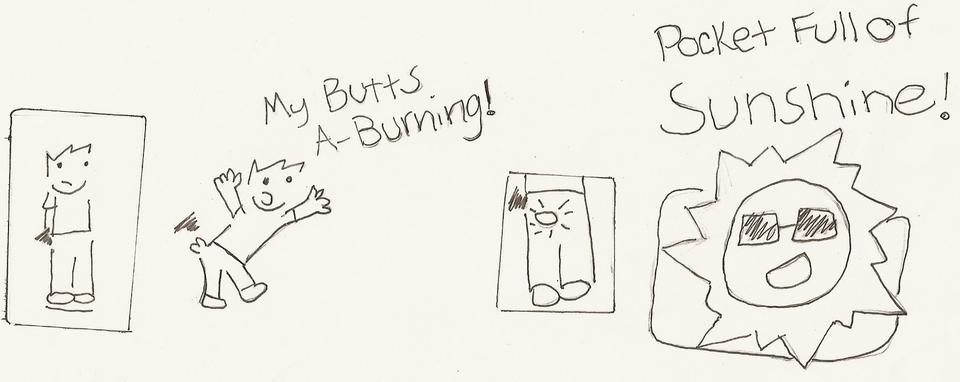 My Butts
A-Burning!
Pocket Full of
Sunshine!